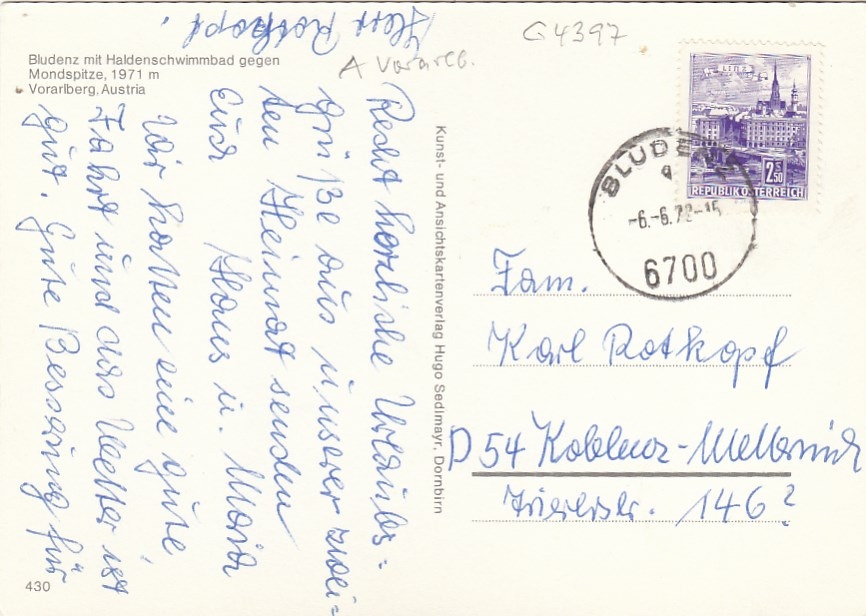 G 4397
A Vorarlb.
Bludenz mit Haldenschwimmbad gegen
Mondspitze, 1971 m
Vorarlberg, Austria
LINZ
2 S 50
REPUBLIK ÖSTERREICH
BLUDENZ
a
-6.-6.72-15
6700
Recht herzliche Urlaubs-
grüße aus unserer zwei-
ten Heimat senden
Euch Hans u. Maria
Wir hatten eine gute
Fahrt und das Wetter ist
gut. Gute Besserung für
Herr Rotkopf.
Kunst- und Ansichtskartenverlag Hugo Sedlmayr, Dornbirn
Fam.
Karl Rotkopf
D 54 Koblenz-Metternich
Triererstr. 146?
430